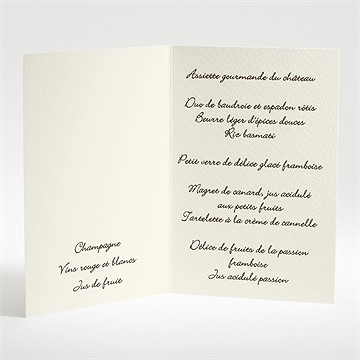 Champagne
Vins rouge et blancs
Jus de fruit
Assiette gourmande du château
Duo de baudroie et espadon rôtis
Beurre léger d'épices douces
Riz basmati
Petit verre de délice glacé framboise
Magret de canard, jus acidulé
aux petits fruits
Tartelette à la crème de cannelle
Délice de fruits de la passion
framboise
Jus acidulé passion